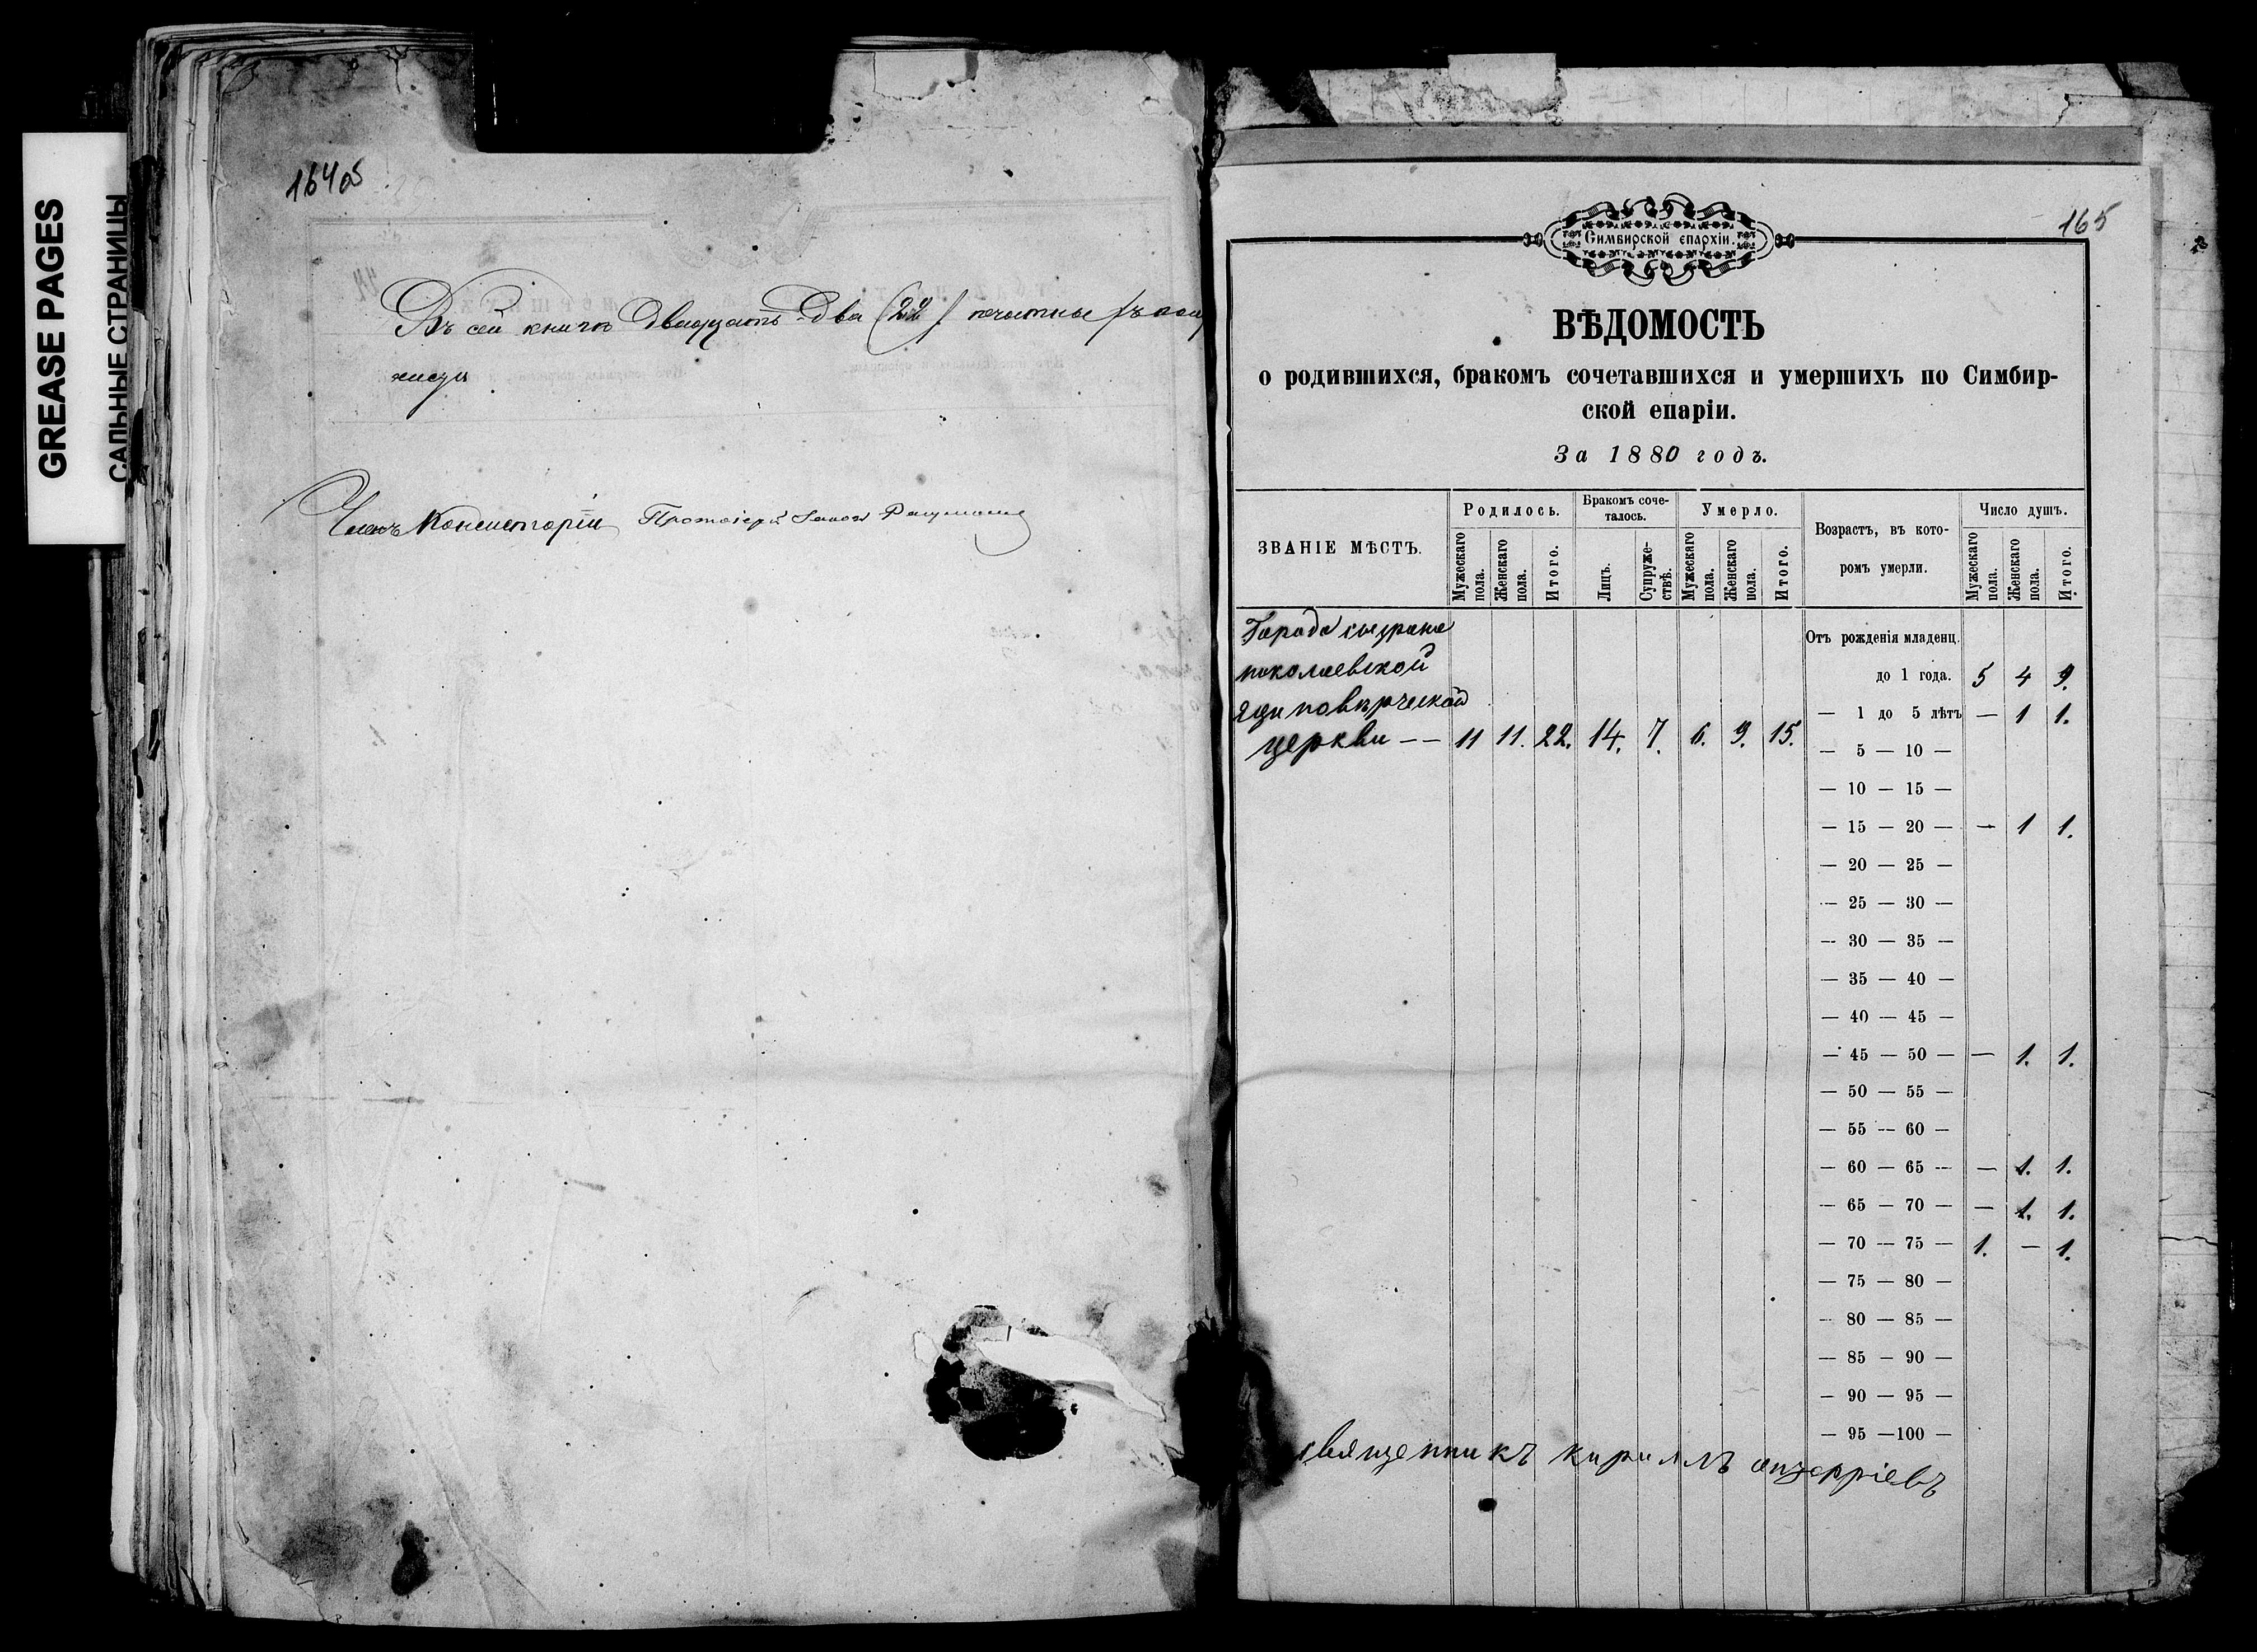 GREASE PAGES
САЛЬНЫЕ СТРАНИЦЫ
164об
Въ сей книгѣ двадцать два (22) печатные
листы
Членъ Консисторіи Протоіерей
165
Симбирской епархіи.
ВѢДОМОСТЬ
о родившихся, бракомъ сочетавшихся и умершихъ по Симбир-
ской епаріи.
За 1880 годъ.
ЗВАНІЕ МѢСТЪ. Родилось. Бракомъ соче-талось. Умерло. Возрастъ, въ кото-ромъ умерли. Число душъ.
Мужескаго пола. Женскаго пола. Итого. Лицъ. Супруже-ствъ. Мужескаго пола. Женскаго пола. Итого. Мужескаго пола. Женскаго пола. Итого.
Города сызрана
николаевской
единоверческой
церкви — — 11 11. 22. 14. 7. 6. 9. 15.
Отъ рожденія младенц.
до 1 года. 5 4 9.
— 1 до 5 лѣтъ — 1 1.
— 5 — 10 —
— 10 — 15 —
— 15 — 20 — — 1 1.
— 20 — 25 —
— 25 — 30 —
— 30 — 35 —
— 35 — 40 —
— 40 — 45 —
— 45 — 50 — — 1. 1.
— 50 — 55 —
— 55 — 60 —
— 60 — 65 — — 1. 1.
— 65 — 70 — — 1. 1.
— 70 — 75 — 1. — 1.
— 75 — 80 —
— 80 — 85 —
— 85 — 90 —
— 90 — 95 —
— 95 — 100 —
священникъ кирилъ